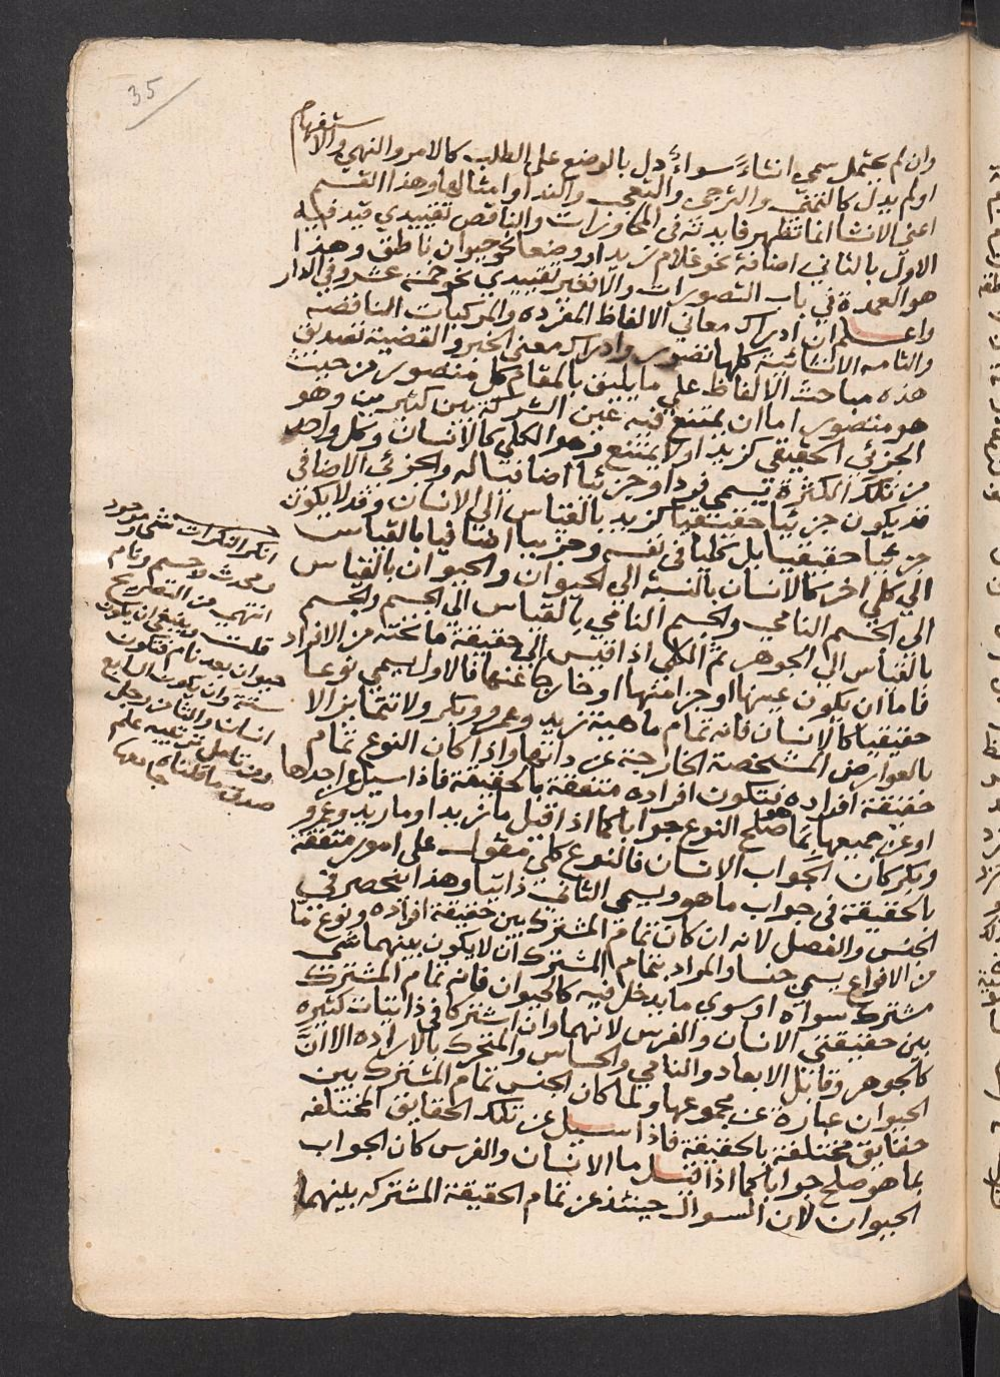 35
وان لم يحتمل سمي انشاءً سواءً دل بالوضع على الطلب كالامر والنهي والاستفهام
او لم يدل كالتمني والترجي والتعجب والندا وامثالها وهذا القسم
اعني الانشا انما تظهر فايدته في المحاورات والناقص تقييدي قيد فيه
الاول بالثاني اضافة نحو غلام زيد او وصفا نحو حيوان ناطق وهذا
هو العمدة في باب التصورات والا فغير تقييدي نحو خمسة عشر وفي الدار
واعلم ان ادراك معاني الالفاظ المفرده والمركبات الناقصه
والتامه الانشائية كلها تصور وادراك معنى الخبر والقضية تصديق
هذه مباحث الالفاظ على ما يليق بالمقام كل متصور من حيث
هو متصور اما ان يمتنع فيه عين الشركة بين كثيرين وهو
الجزئي الحقيقي كزيد او لا يمتنع وهو الكلي كالانسان وكل واحد
من تلك الكثرة يسمى فردا وجزئيا اضافيا له والجزئي الاضافي
قد يكون جزئيا حقيقيا كزيد بالقياس الى الانسان وقد لا يكون
جزئيا حقيقيا بل كليا في نفسه وجزييا اضافيا بالقياس
الى كلي اخر كالانسان بالنسبة الى الحيوان والحيوان بالقياس
الى الجسم النامي والجسم النامي بالقياس الى الجسم والجسم
بالقياس الى الجوهر ثم الكلي اذا قيس الى حقيقة ما تحته من الافراد
فاما ان يكون عينها او جزأ منها او خارجا عنها فالاول يسمى نوعا
حقيقيا كالانسان فانه تمام ماهية زيد وعمرو وبكر ولا تتمايز الا
بالعوارض المشخصة الخارجة عن ذاتها واذا كان النوع تمام
حقيقة افراده فيكون افراده متفقة بالحقيقة فاذا سيل عن احداها
او عن جميعها بما هو صلح النوع جوابا كما اذا قيل ما زيد او ما زيد وعمرو
وبكر كان الجواب الانسان فالنوع كلي مقول على امور متفقة
بالحقيقة في جواب ما هو ويسمى الثاني ذاتيا وهذا ينحصر في
الجنس والفصل لانه ان كان تمام المشترك بين حقيقة افراده ونوع ما
من الانواع يسمى جنسا والمراد بتمام المشترك ان لا يكون بينهما شي
مشترك سواه او سوى ما يدخل فيه كالحيوان فانه تمام المشترك
بين حقيقتي الانسان والفرس لانهما وان اشتركا في ذاتيات كثيره
كالجوهر وقابل الابعاد والنامي والحساس والمتحرك بالاراده الا ان
الحيوان عبارة عن مجموعها ولما كان الجنس تمام المشترك بين
حقايق مختلفة بالحقيقة فاذا سيل عن تلك الحقايق المختلفه
بما هو صلح جوابا كما اذا قيل ما الانسان والفرس كان الجواب
الحيوان لان السوال حينئذ عن تمام الحقيقة المشتركه بينهما
انكر النكرات شي وموجود
ومحدث وجسم ونام
انتهى من التصريح
قلت وينبغي ان يكون
حيوان بعد نام فتكون
ستة وان يكون الرابع
انسان والثان رجل
ومن تامل ترتيبه علم
صدق ما قلناه
جامعها